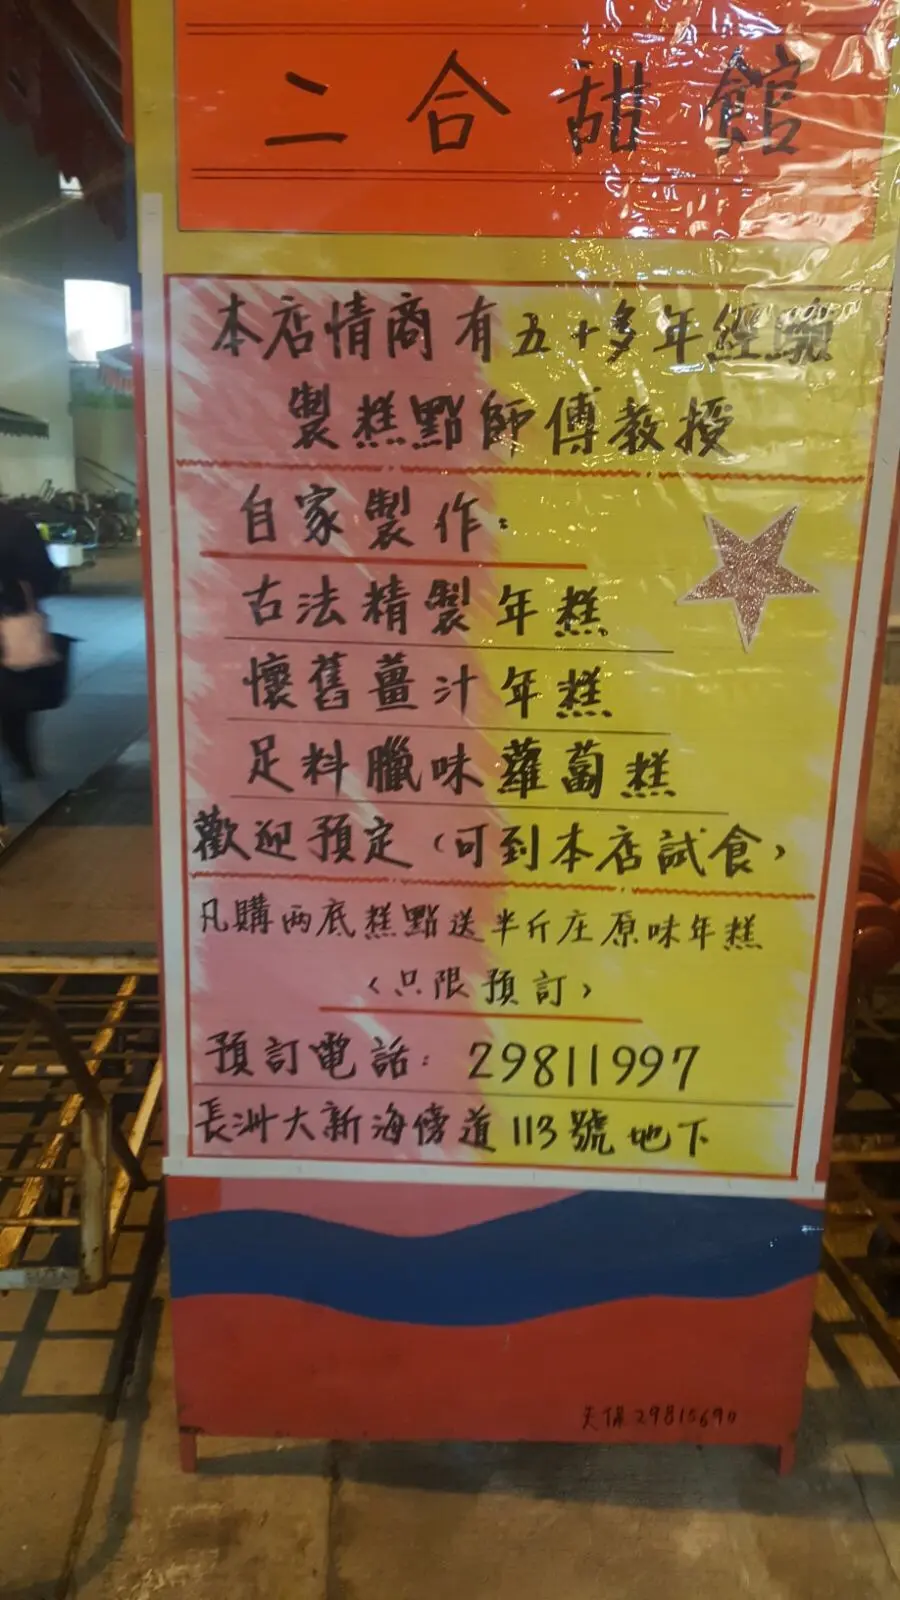 二合甜館
本店情商有五十多年經驗
製糕點師傅教授
自家製作：
古法精製年糕
懷舊薑汁年糕
足料臘味蘿蔔糕
歡迎預定（可到本店試食）
凡購两底糕點送半斤庄原味年糕
（只限預訂）
預訂電話：29811997
長洲大新海傍道113號地下